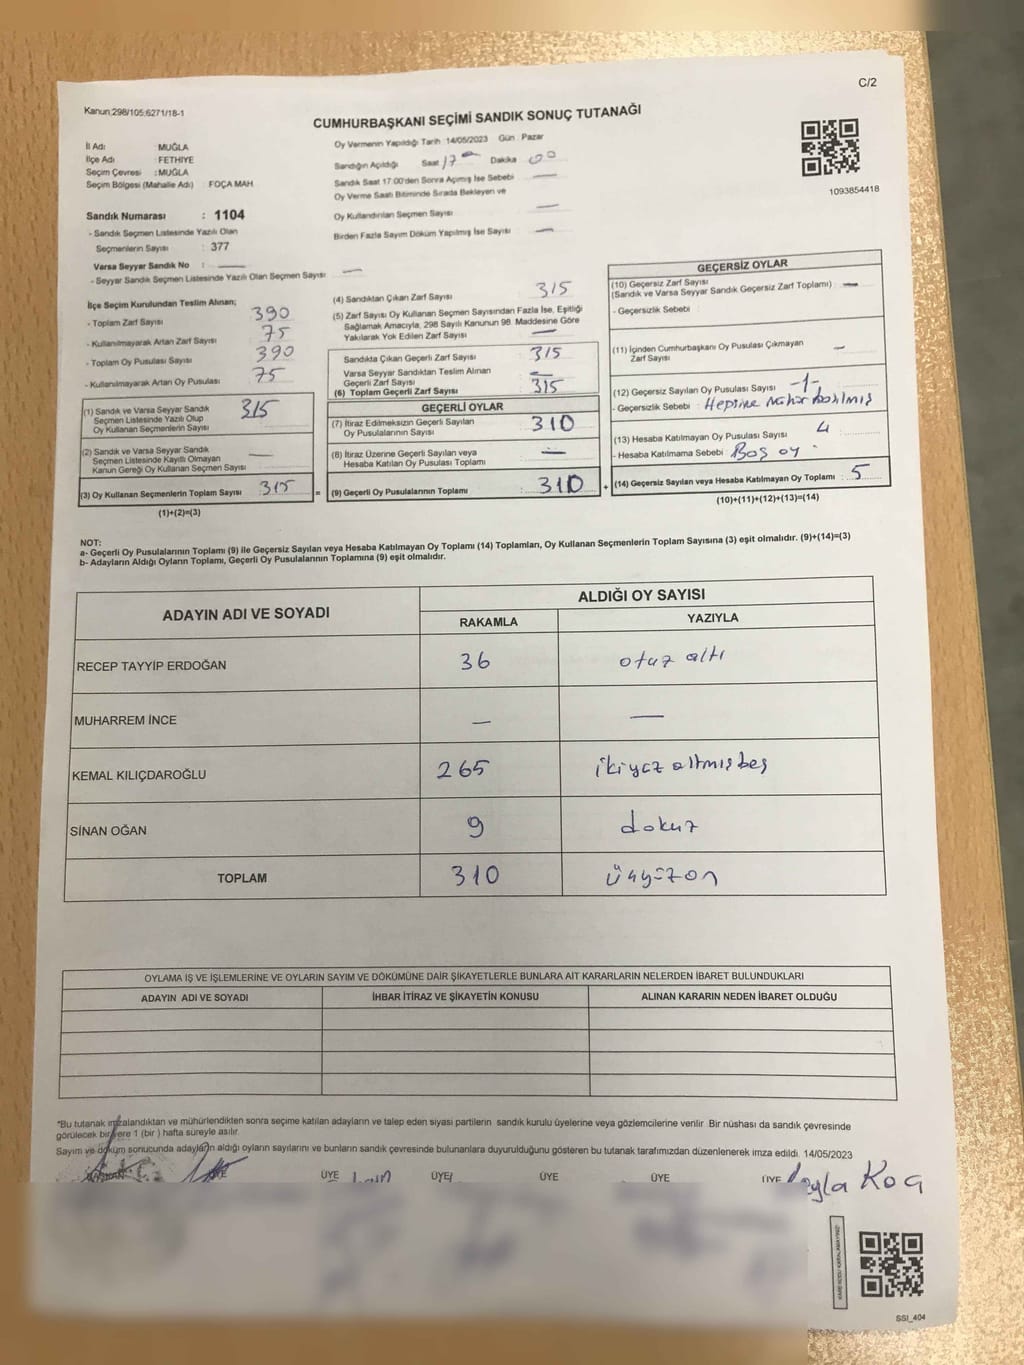 C/2
Kanun;298/105;6271/18-1
CUMHURBAŞKANI SEÇİMİ SANDIK SONUÇ TUTANAĞI
İl Adı : MUĞLA
İlçe Adı : FETHİYE
Seçim Çevresi : MUĞLA
Seçim Bölgesi (Mahalle Adı) : FOÇA MAH.
Sandık Numarası : 1104
- Sandık Seçmen Listesinde Yazılı Olan
Seçmenlerin Sayısı : 377
Varsa Seyyar Sandık No : —
- Seyyar Sandık Seçmen Listesinde Yazılı Olan Seçmen Sayısı : —
Oy Vermenin Yapıldığı Tarih : 14/05/2023 Gün : Pazar
Sandığın Açıldığı Saat 17 Dakika 00
Sandık Saat 17:00'den Sonra Açılmış İse Sebebi —
Oy Verme Saati Bitiminde Sırada Bekleyen ve
Oy Kullandırılan Seçmen Sayısı —
Birden Fazla Sayım Döküm Yapılmış İse Sayısı —
1093854418
İlçe Seçim Kurulundan Teslim Alınan;
- Toplam Zarf Sayısı : 390
- Kullanılmayarak Artan Zarf Sayısı : 75
- Toplam Oy Pusulası Sayısı : 390
- Kullanılmayarak Artan Oy Pusulası : 75
(1) Sandık ve Varsa Seyyar Sandık
Seçmen Listesinde Yazılı Olup
Oy Kullanan Seçmenlerin Sayısı 315
(2) Sandık ve Varsa Seyyar Sandık
Seçmen Listesinde Kayıtlı Olmayan
Kanun Gereği Oy Kullanan Seçmen Sayısı —
(3) Oy Kullanan Seçmenlerin Toplam Sayısı : 315
(1)+(2)=(3)
(4) Sandıktan Çıkan Zarf Sayısı : 315
(5) Zarf Sayısı Oy Kullanan Seçmen Sayısından Fazla İse, Eşitliği
Sağlamak Amacıyla, 298 Sayılı Kanunun 98. Maddesine Göre
Yakılarak Yok Edilen Zarf Sayısı : —
Sandıkta Çıkan Geçerli Zarf Sayısı : 315
Varsa Seyyar Sandıktan Teslim Alınan
Geçerli Zarf Sayısı : —
(6) Toplam Geçerli Zarf Sayısı : 315
GEÇERLİ OYLAR
(7) İtiraz Edilmeksizin Geçerli Sayılan
Oy Pusulalarının Sayısı : 310
(8) İtiraz Üzerine Geçerli Sayılan veya
Hesaba Katılan Oy Pusulası Toplamı : —
= (9) Geçerli Oy Pusulalarının Toplamı : 310
GEÇERSİZ OYLAR
(10) Geçersiz Zarf Sayısı
(Sandık ve Varsa Seyyar Sandık Geçersiz Zarf Toplamı) : —
- Geçersizlik Sebebi :
(11) İçinden Cumhurbaşkanı Oy Pusulası Çıkmayan
Zarf Sayısı : —
(12) Geçersiz Sayılan Oy Pusulası Sayısı : -1-
- Geçersizlik Sebebi : Hepsine mühür basılmış
(13) Hesaba Katılmayan Oy Pusulası Sayısı : 4
- Hesaba Katılmama Sebebi : Boş oy
+ (14) Geçersiz Sayılan veya Hesaba Katılmayan Oy Toplamı : 5
(10)+(11)+(12)+(13)=(14)
NOT:
a- Geçerli Oy Pusulalarının Toplamı (9) ile Geçersiz Sayılan veya Hesaba Katılmayan Oy Toplamı (14) Toplamları, Oy Kullanan Seçmenlerin Toplam Sayısına (3) eşit olmalıdır. (9)+(14)=(3)
b- Adayların Aldığı Oyların Toplamı, Geçerli Oy Pusulalarının Toplamına (9) eşit olmalıdır.
ADAYIN ADI VE SOYADI
ALDIĞI OY SAYISI
RAKAMLA YAZIYLA
RECEP TAYYİP ERDOĞAN 36 otuz altı
MUHARREM İNCE — —
KEMAL KILIÇDAROĞLU 265 ikiyüz altmışbeş
SİNAN OĞAN 9 dokuz
TOPLAM 310 üçyüzon
OYLAMA İŞ VE İŞLEMLERİNE VE OYLARIN SAYIM VE DÖKÜMÜNE DAİR ŞİKAYETLERLE BUNLARA AİT KARARLARIN NELERDEN İBARET BULUNDUKLARI
ADAYIN ADI VE SOYADI İHBAR İTİRAZ VE ŞİKAYETİN KONUSU ALINAN KARARIN NEDEN İBARET OLDUĞU
*Bu tutanak imzalandıktan ve mühürlendikten sonra seçime katılan adayların ve talep eden siyasi partilerin sandık kurulu üyelerine veya gözlemcilerine verilir. Bir nüshası da sandık çevresinde
görülecek bir yere 1 (bir) hafta süreyle asılır.
Sayım ve döküm sonucunda adayların aldığı oyların sayılarını ve bunların sandık çevresinde bulunanlara duyurulduğunu gösteren bu tutanak tarafımızdan düzenlenerek imza edildi. 14/05/2023
ÜYE ÜYE ÜYE ÜYE ÜYE
Koç
SSI_404